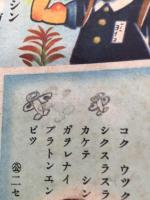 コク ウツク
シクスラスラ
カケテ シン
ガヲレナイ
プラトンエン
ピツ
二セ